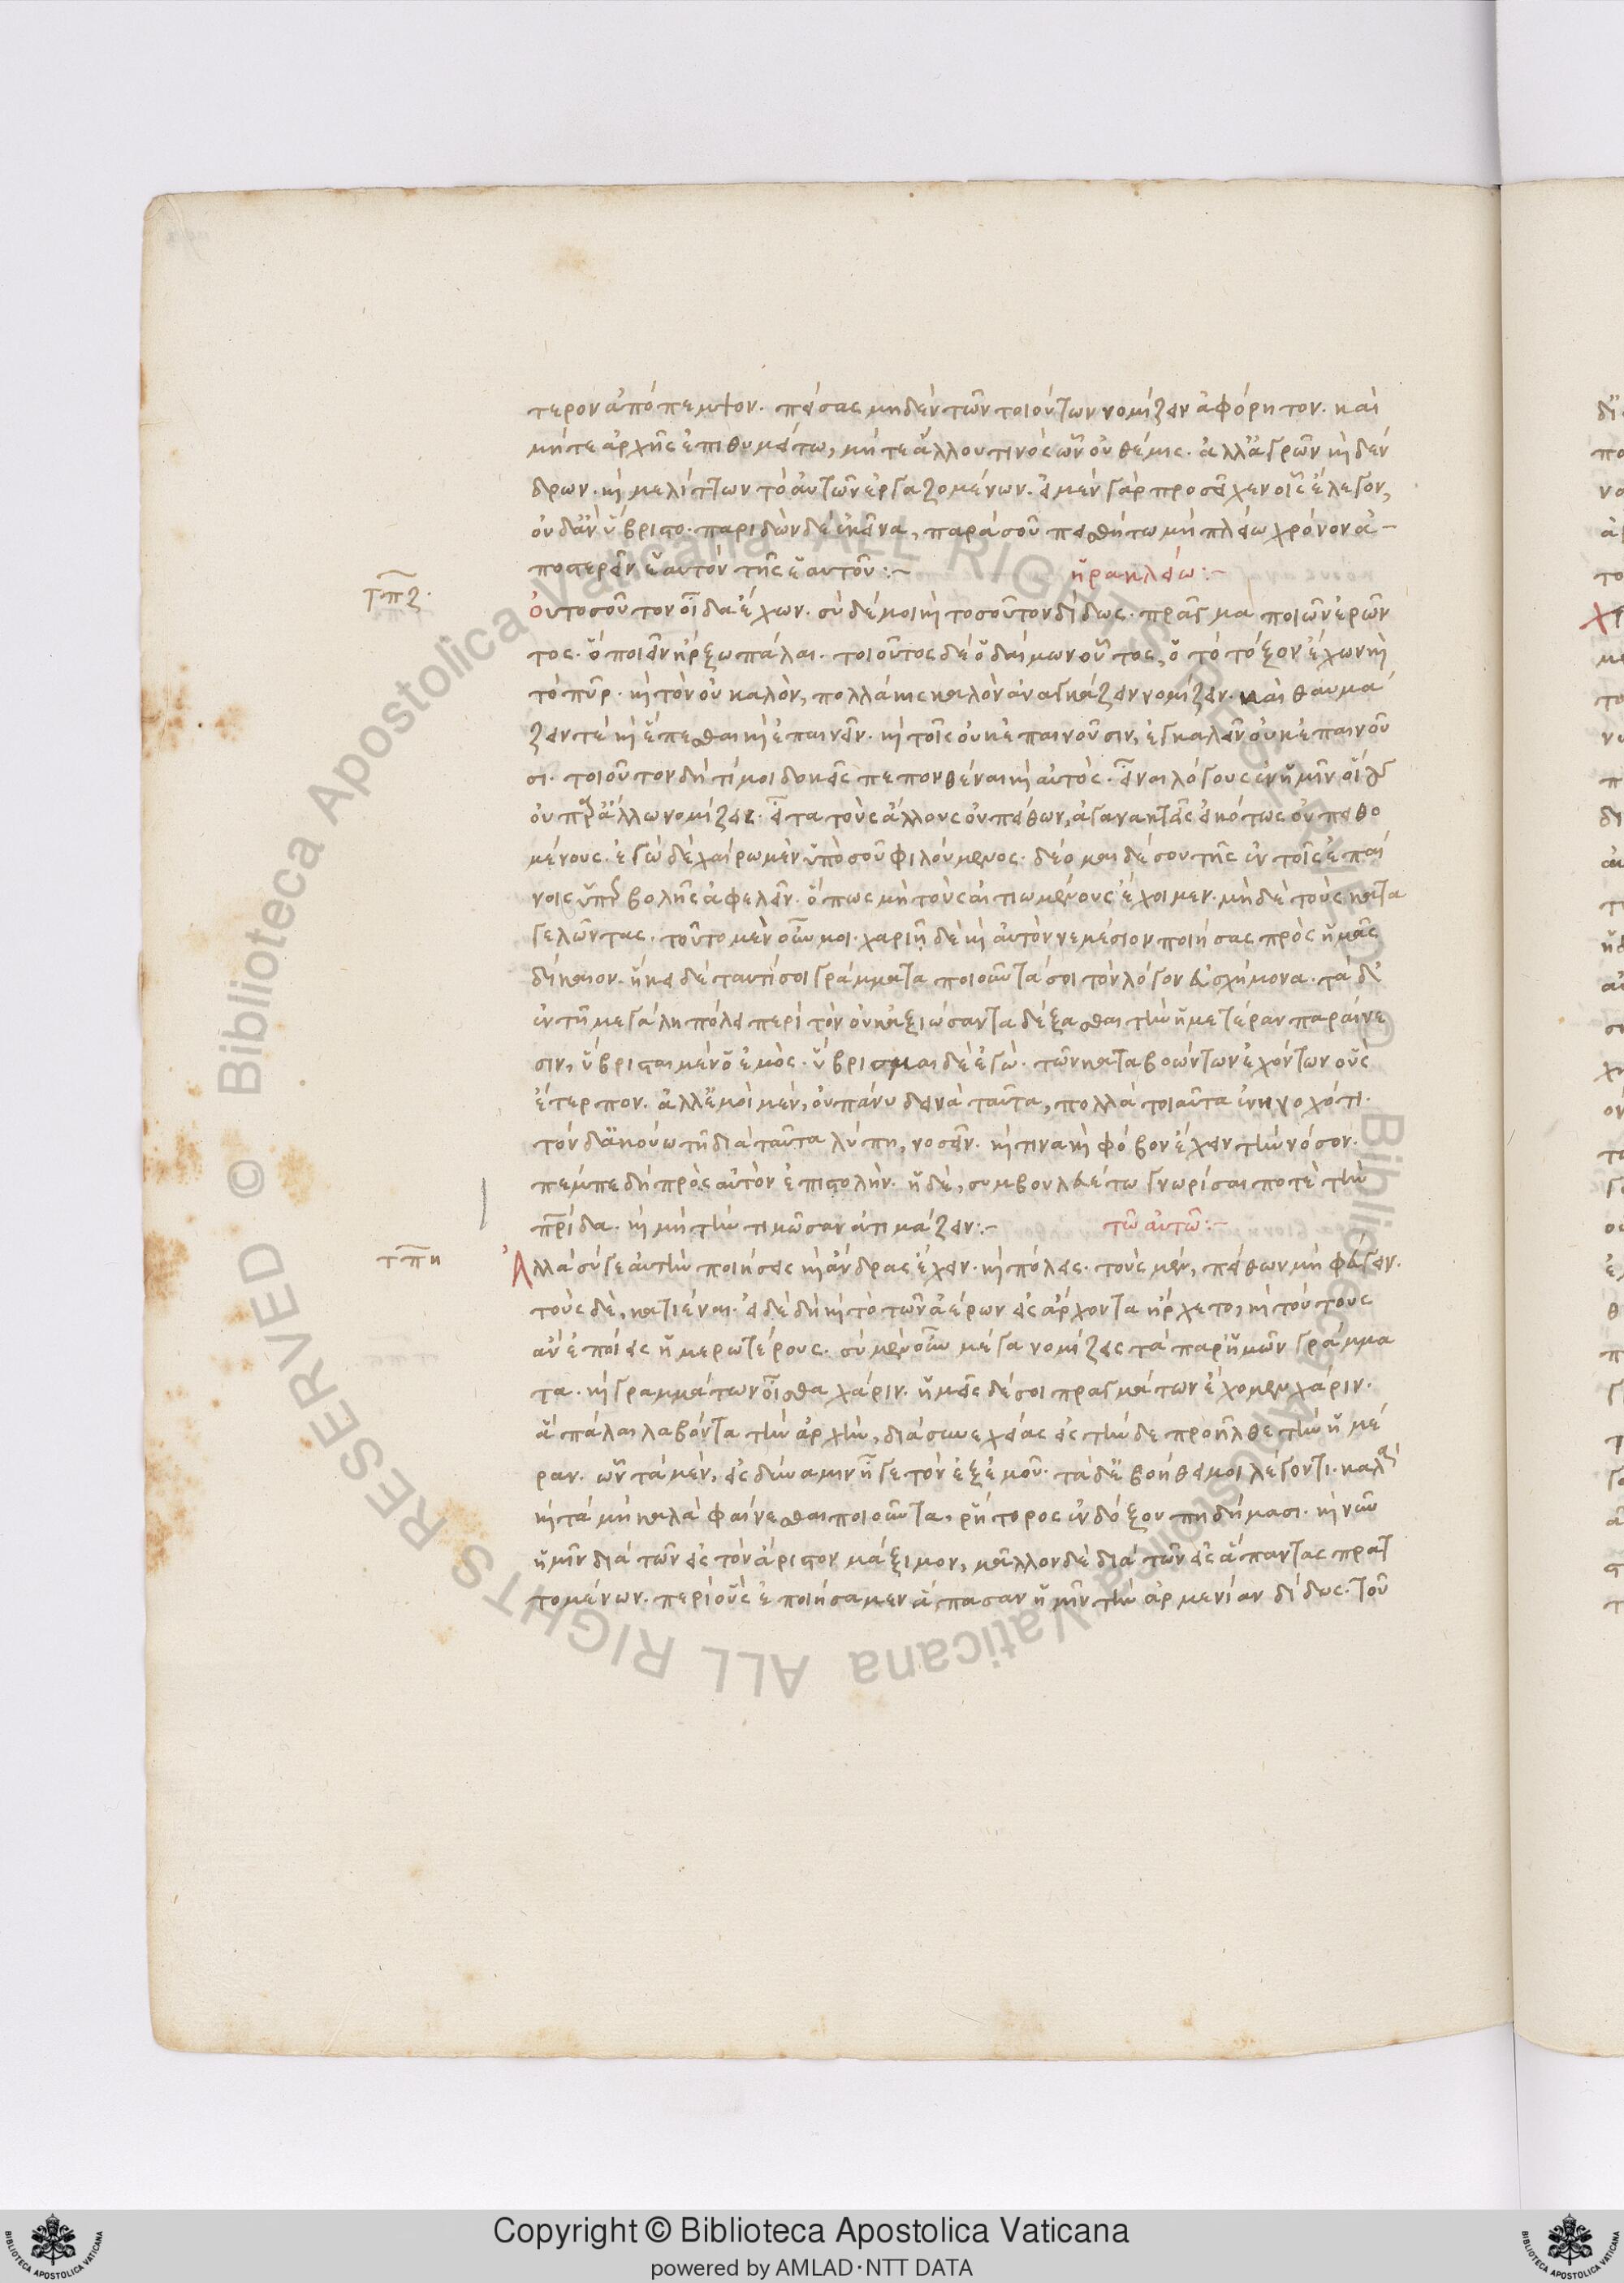 τερον ἀπόπεμψον. πείσας μηδὲν τῶν τοιούτων νομίζειν ἀφόρητον. καὶ
μήτε ἀρχῆς ἐπιθυμείτω, μήτε ἄλλου τινὸς ὧν οὐ θέμις. ἀλλ' ἀγρῶν κὶ δέν
δρων. κὶ μελιττῶν τὸ αὐτῶν ἐργαζομένων. εἰ μὲν γὰρ προσεῖχεν οἷς ἔλεγον,
οὐδ' ἂν ὕβριστο. παριδὼν δὲ ἐκεῖνα, παρὰ σοῦ πεισθήτω μὴ πλείω χρόνον ἀ-
ποστερεῖν ἑαυτὸν τῆς ἑαυτοῦ:-
ἡρακλείω:-
τπζ.
Οὐ τοσοῦτον οἶδα ἔχων. σὺ δέ μοι κὶ τοσοῦτον δίδως. πρᾶγμα ποιῶν ἐρῶν
τος. ὃ ποιεῖν ἤρξω πάλαι. τοιοῦτος δὲ ὁ δαίμων οὗτος, ὁ τὸ τόξον ἔχων κὶ
τὸ πῦρ. κὶ τὸν οὐ καλὸν, πολλάκις καλὸν ἀναγκάζειν νομίζειν. καὶ θαυμά
ζειν τὲ κὶ ἕπεσθαι κὶ ἐπαινεῖν. κὶ τοῖς οὐκ ἐπαινοῦσιν, ἐγκαλεῖν ὅτι οὐκ ἐπαινοῦ
σι. τοιοῦτον δή τί μοι δοκεῖς πεπονθέναι κὶ αὐτὸς. εἶναι λόγους ἐν ἡμῖν οἵους
οὐ παρ' ἄλλω νομίζεις. εἶτα τοὺς ἄλλους οὐ πείθων, ἀγανακτεῖς εἰκότως οὐ πειθο
μένους. ἐγὼ δὲ χαίρω μὲν ὑπὸ σοῦ φιλούμενος. δέομαι δέ σου τῆς ἐν τοῖς ἐπαί
νοις ὑπερβολῆς ἀφελεῖν. ὅπως μὴ τοὺς αἰτιωμένους ἔχοιμεν. μὴ δὲ τοὺς κατα
γελῶντας. τοῦτο μὲν οὖν μοι. χαριῆ δὲ κὶ αὐτὸν νεμέσιον ποιήσας πρὸς ἡμᾶς
δίκαιον. ἥκει δὲ ταυτί σοι γράμματα ποιοῦντά σοι τὸν λόγον εὐσχήμονα. τὰ δ'
ἐν τῆ μεγάλη πόλει περὶ τὸν οὐκ ἀξιώσαντα δέξασθαι τὴν ἡμετέραν παραίνε
σιν, ὕβρισται μὲν ὁ ἐμὸς. ὕβρισμαι δὲ ἐγὼ. τῶν καταβοώντων ἐχόντων οὓς
ἔτερπον. ἀλλ' ἐμοὶ μὲν, οὐ πάνυ δεινὰ ταῦτα, πολλὰ τοιαῦτα ἐνηνοχότι.
τὸν δ' ἀκούω τῆ διὰ ταῦτα λύπη, νοσεῖν. κὶ τινα κὶ φόβον ἔχειν τὴν νόσον.
πέμπε δὴ πρὸς αὐτὸν ἐπιστολὴν. ἡ δὲ, συμβουλευέτω γνωρίσαι ποτὲ τὴν
πρίδα. κὶ μὴ τὴν τιμῶσαν ἀτιμάζειν:-
τῶ αὐτῶ:-
τπη
Ἀλλὰ σύ γε αὐτὴν ποιήσεις κὶ ἄνδρας ἔχειν. κὶ πόλεις. τοὺς μὲν, πείθων μὴ φεύγειν.
τοὺς δὲ, κατιέναι. εἰ δὲ δὴ κὶ τὸ τῶν ἀέρων εἰς ἄρχοντα ἤρχετο, κὶ τούτους
ἂν ἐποίεις ἡμερωτέρους. σὺ μὲν οὖν μέγα νομίζεις τὰ παρ' ἡμῶν γράμμα
τα. κὶ γραμμάτων οἶσθα χάριν. ἡμεῖς δέ σοι πραγμάτων ἔχομεν χάριν.
ἃ πάλαι λαβόντα τὴν ἀρχὴν, διὰ συνεχείας εἰς τήνδε προῆλθε τὴν ἡμέ
ραν. ὧν τὰ μὲν, εἰς δύναμιν ἦγε τὸν ἐξ ἐμοῦ. τὰ δ' ἐβοήθει μοι λέγοντι. καλὰ
κὶ τὰ μὴ καλὰ φαίνεσθαι ποιοῦντα, ῥήτορος ἐνδόξου πηδήμασι. κὶ νῦν
ἡμῖν διὰ τῶν εἰς τὸν ἄριστον μάξιμον, μᾶλλον δὲ διὰ τῶν εἰς ἅπαντας πρατ
τομένων. περὶ οὓς ἐποιήσαμεν ἅπασαν ἡμῖν τὴν ἀρμενίαν δίδως. τοῦ
Copyright © Biblioteca Apostolica Vaticana
powered by AMLAD·NTT DATA